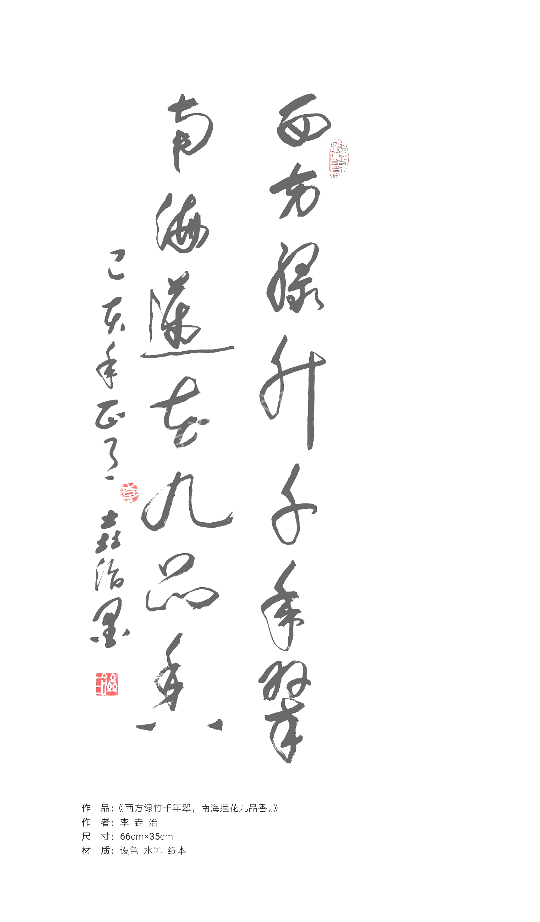 西方绿竹千年翠
南海莲花九品香
己亥年正月
垚治墨
作 品：《西方绿竹千年翠，南海莲花九品香。》
作 者：李 垚 治
尺 寸：66cm×35cm
材 质：设色 水墨 纸本